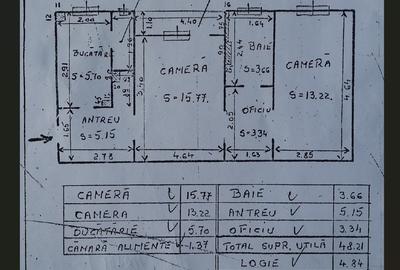 11
12
16
2.00
4.40
1.64
1.10
BUCĂTĂRIE
S=5.70
2.91
CAMERĂ
S=15.77.
3.40
BAIE
S=3.66
2.44
CAMERĂ
S=13.22.
4.64
ANTREU
S=5.15
1.65
OFICIU
S=3.34
2.05
2.78
4.64
1.63
2.85
CAMERĂ 15.77 BAIE 3.66
CAMERA 13.22 ANTREU 5.15
BUCĂTARIE 5.70 OFICIU 3.34
CĂMARĂ ALIMENTE 1.37 TOTAL SUPR. UTILĂ 48.21
LOGIE 4.84